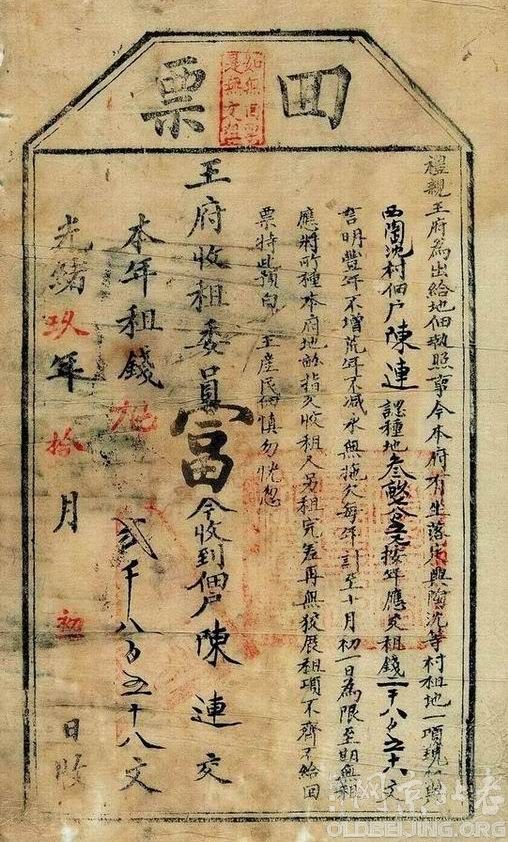 回票
禮親王府為出給地佃執照事今本府有坐落興陶沈等村租地一項現佃與
西陶沈村佃戶陳連認種地叁畝按年應交租錢二千八百五十八文
言明豐年不增荒年不減永無拖欠每年計至十月初一日為限至期無租
應將所種本府地畝指收租人另租完差再無發展租項不齊不給回
票特此預白王產民佃慎勿忽
王府收租委員富今收到佃戶陳連交
本年租錢弍千八百五十八文
光緒玖年拾月初日收
网京北老
OLDBEIJING.ORG